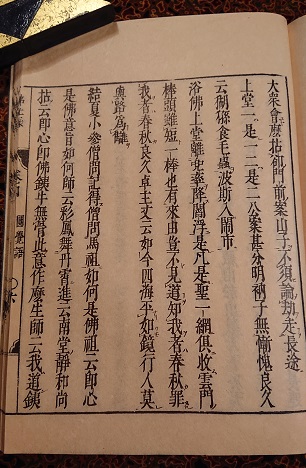 大衆會麼拈却門前案山子不須論劫走長途
上堂一是一二是二公案甚分明衲子無慚愧良久
云制磜食毛蟲波斯入閙市
浴佛上堂離兜率降閻浮是凡是聖一網俱收雲門
棒頭雖短一棒也有來由豈不見道知我者春秋罪
我者春秋良久卓主丈云如今四海平如鏡行人莫
與路為讎
結夏小參僧問記得僧問馬祖如何是佛祖云即心
是佛意旨如何師云彩鳳舞丹霄進云南堂靜和尚
拈云即心即佛銕牛無骨此意作麼生師云我道銕
圓覺語